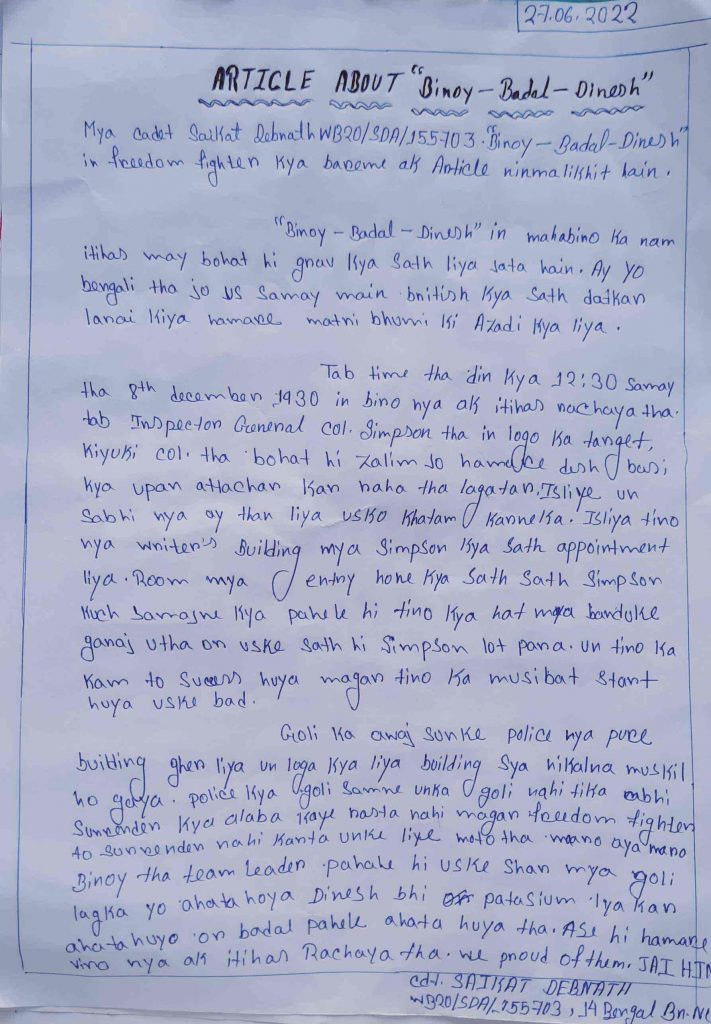 27.06.2022
ARTICLE ABOUT "Binoy - Badal - Dinesh"
Mya cadet Saikat Debnath WB20/SDA/155703. "Binoy - Badal - Dinesh"
in freedom fighter Kya bareme ak Article ninmalikhit hain.
"Binoy - Badal - Dinesh" in mahabiro Ka nam
itihas may bohat hi grav Kya Sath liya Jata hain. Ay yo
bengali tha jo us Samay main british Kya Sath datkar
larai Kiya hamare matri bhumi Ki Azadi Kya liya.
Tab time tha din Kya 12:30 Samay
tha 8th december 1930 in biro nya ak itihas rachaya tha.
tab Inspector General col. Simpson tha in logo Ka target,
Kiyuki col. tha bohat hi Zalim Jo hamare desh basi
Kya upar attachar Kar raha tha lagatar. Isliye un
Sabhi nya ay than liya usko Khatam Karneka. Isliya tino
nya writer's Building mya Simpson Kya Sath appointment
liya. Room mya entry hone Kya Sath Sath Simpson
Kuch Samajne Kya pahele hi tino Kya hat mya banduke
garaj utha or uske sath hi Simpson lot para. un tino Ka
Kam to Sucess huya magar tino Ka musibat Start
huya uske bad.
Goli Ka awaj Sunke police nya puce
building gher liya un loga Kya liya building Sya nikalna muskil
ho gaya. police Kya goli Samne unka goli nahi tika abhi
Surrender Kya alaba Kaye rasta nahi magar freedom fighter
to surrender nahi Karta unke liye moto tha maro aya maro
Binoy tha team leader pahale hi uske Shar mya goli
lagka yo ahata hoya Dinesh bhi patasium lya kar
ahata huyo or badal pahele ahata huya tha. Ase hi hamare
viro nya ak itihas Rachaya tha. we proud of them. JAI HIN
cdt. SAIKAT DEBNATH
WB20/SDA/155703, 14 Bengal Bn. NC